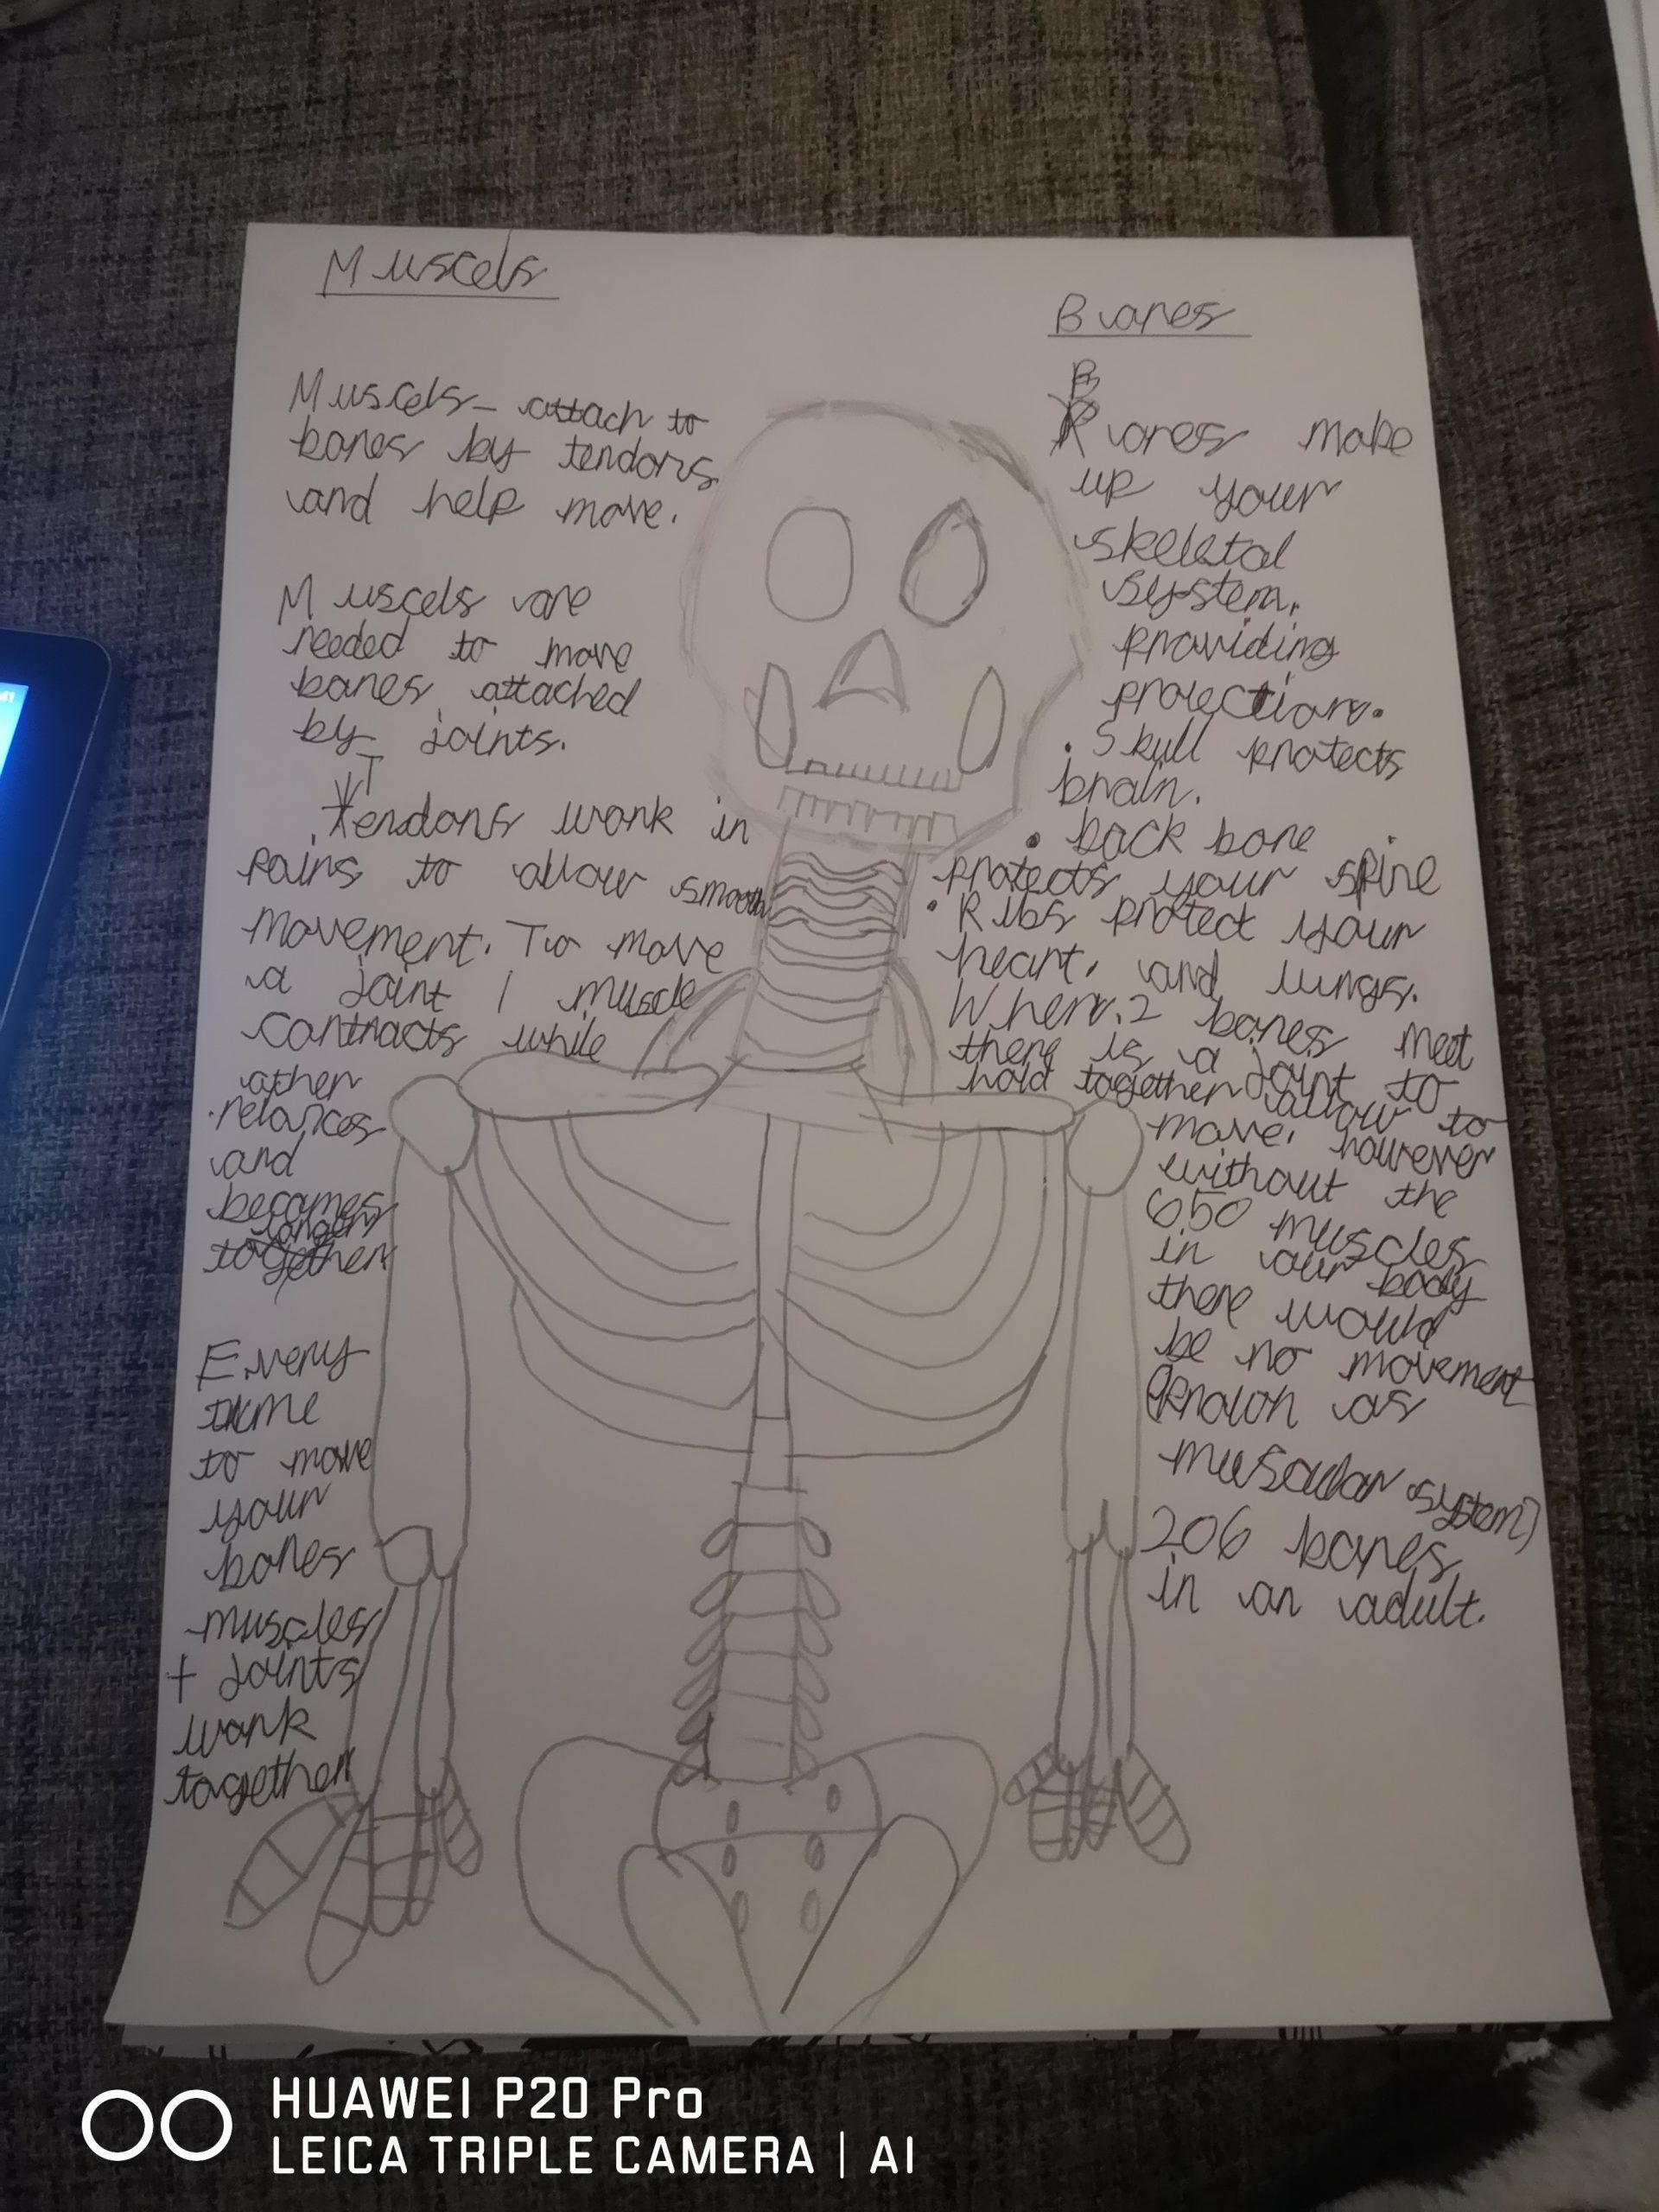 Muscels
Muscels - attach to
bones by tendons
and help move.
Muscels are
needed to move
bones attached
by joints.
T
Tendons work in
pairs to allow smooth
movement. To move
a joint 1 muscle
contracts while
other
relaxces
and
becomes
longer
together
Every
time
to move
your
bones
-muscles
+ joints
work
together
Bones
B
Bones make
up your
skeletal
system.
providing
protection.
. Skull protects
brain.
. back bone
protects your spine
. Ribs protect your
heart, and lungs.
When 2 bones meet
there is a joint to
hold together allow to
move, however
without the
650 muscles
in our body
there would
be no movement
(known as
muscular system)
206 bones
in an adult.
HUAWEI P20 Pro
LEICA TRIPLE CAMERA | AI